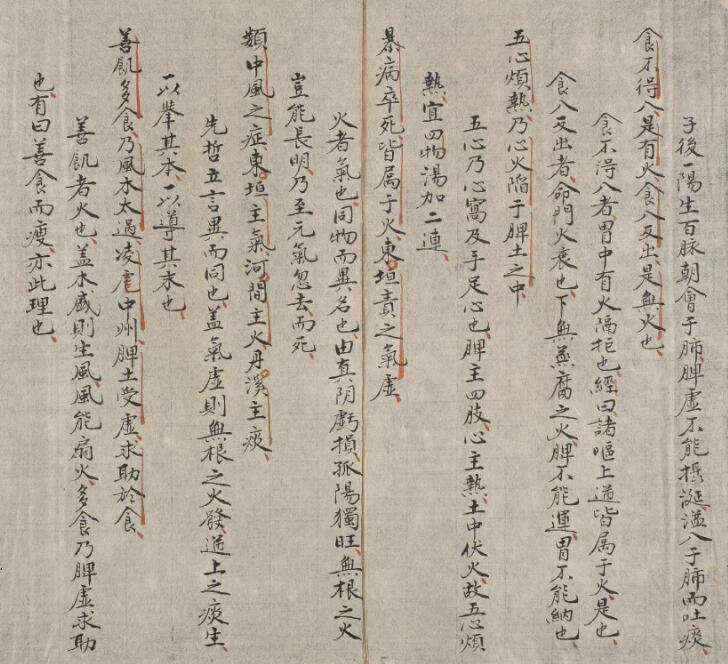 子後一陽生百脉朝會于肺脾虛不能攝涎溢入于肺而吐痰
食不得入是有火食入反出是無火也
食不得入者胃中有火隔拒也經曰諸嘔上逆皆属于火是也
食入反出者命門火衰也下無蒸腐之火脾不能運胃不能納也
五心煩熱乃心火陷于脾土之中
五心乃心窩及手足心也脾主四肢心主熱土中伏火故五心煩
熱宜四物湯加二連
暴病卒死皆属于火東垣責之氣虛
火者氣也同物而異名也由真阴虧損孤陽獨旺無根之火
豈能長明乃至元氣忽去而死
類中風之症東垣主氣河間主火丹溪主痰
先哲立言異而同也盖氣虛則無根之火發逆上之痰生
一以擧其本一以導其末也
善飢多食乃風木太過凌虐中州脾土受虛求助於食
善飢者火也盖木盛則生風風能扇火多食乃脾虛求助
也有曰善食而瘦亦此理也